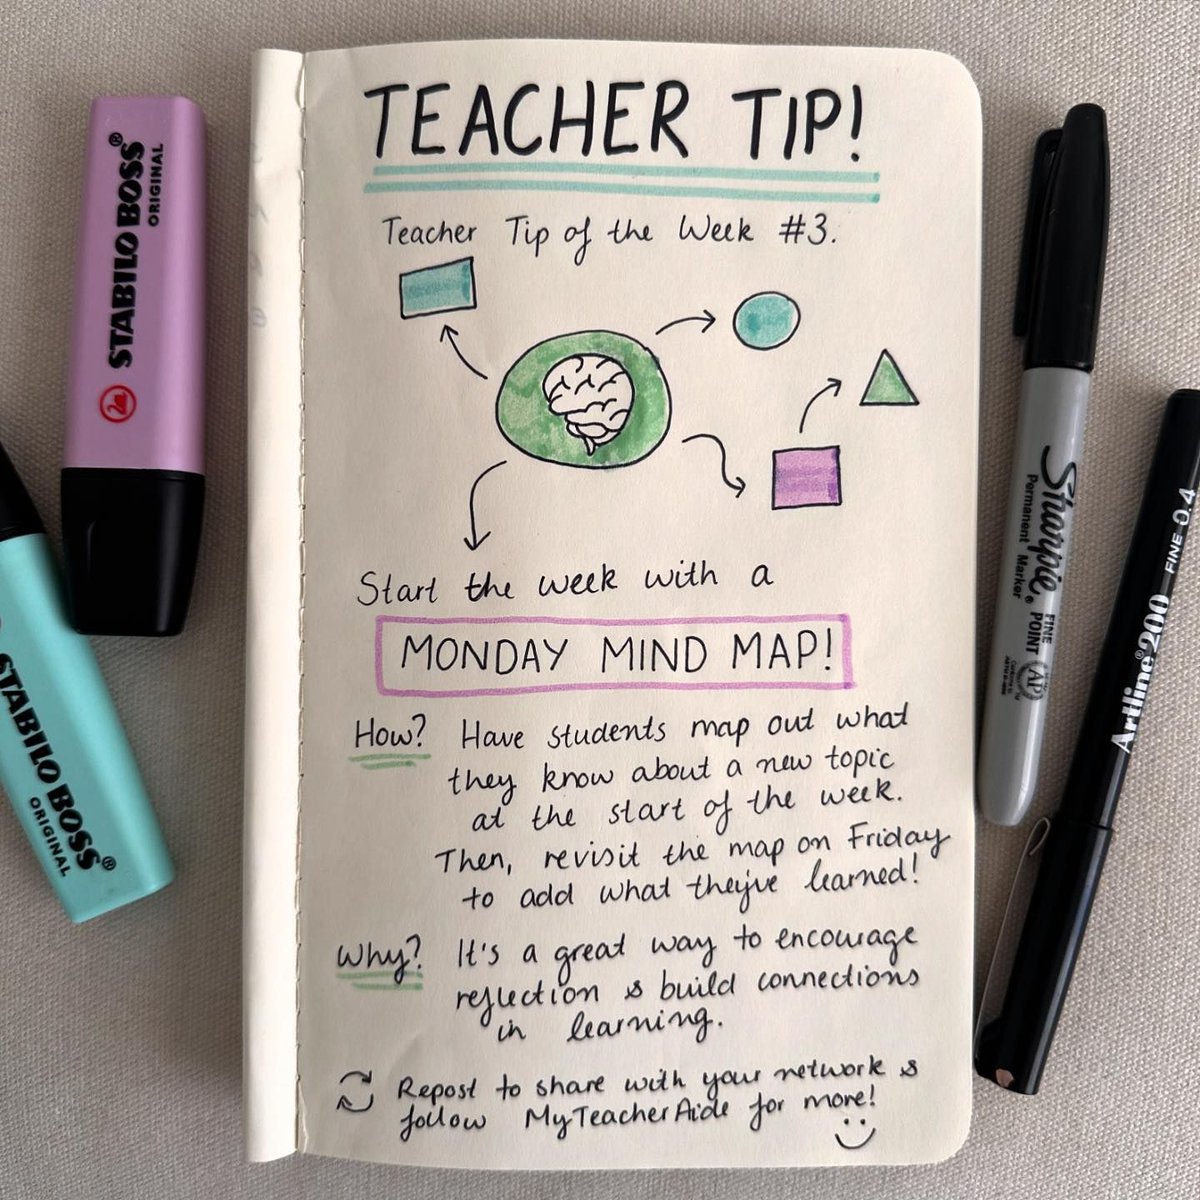 TEACHER TIP!
Teacher Tip of the Week #3.
Start the week with a
MONDAY MIND MAP!
How? Have students map out what
they know about a new topic
at the start of the week.
Then, revisit the map on Friday
to add what they've learned!
Why? It's a great way to encourage
reflection & build connections
in learning.
Repost to share with your network &
follow MyTeacherAide for more!
STABILO BOSS®
ORIGINAL
STABILO BOSS®
ORIGINAL
Sharpie®
Permanent Marker
FINE
POINT
AP
Artline®200
FINE 0.4